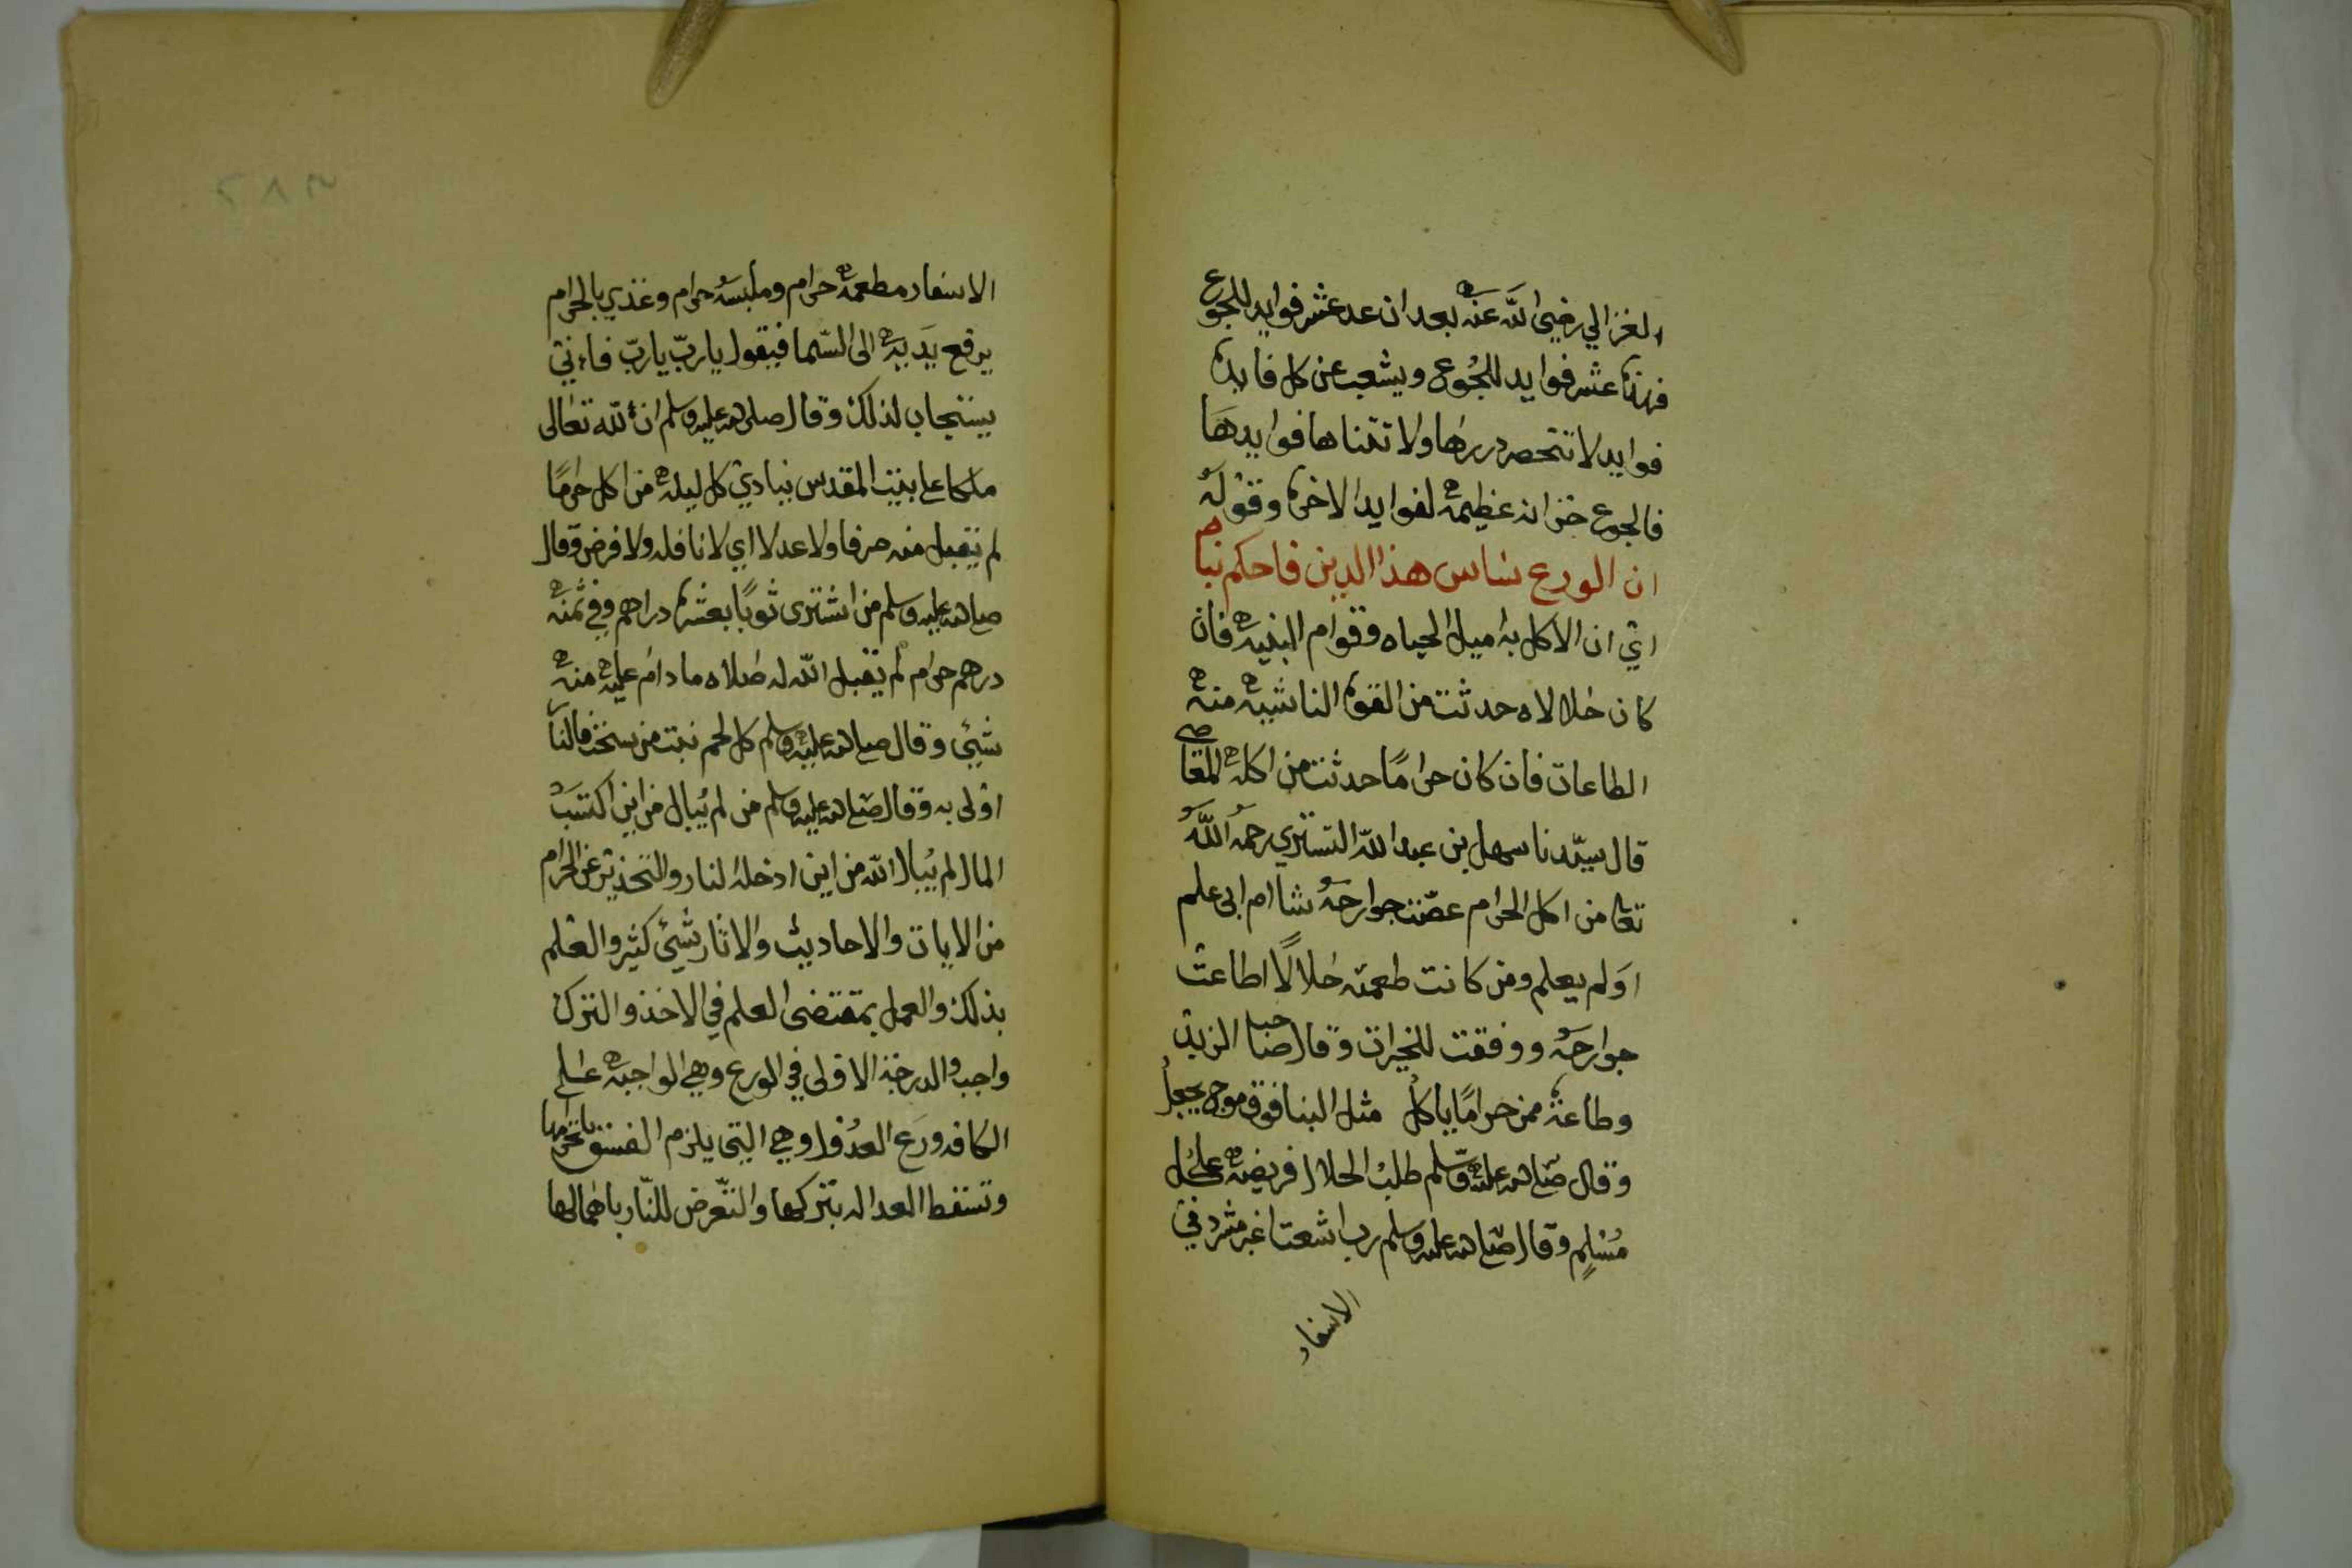 الغزالي رضي الله عنه بعد ان عد عشر فوايد للجوع
فهذه عشر فوايد للجُوع ويشعب عن كل فايده
فوايد لا تنحصر دررها ولا تتناها فوايدها
فالجوع خزانه عظيمه لفوايد الاخره وقوله
ان الورع ساس هذا الدين فاحكم بناه
اي ان الاكل به اميل الحياه وقوام البنيه فان
كان حلالاه حدثت من القوه الناشيه منه
الطاعات فان كان حرامًا حدثت من اكله المعاصي
قال سيّدنا سهل بن عبد الله التستري رحمهُ اللّهُ
تعالى من اكل الحرام عصَت جوارحهُ شا ام ابى علم
اوَلم يعلم ومن كانت طعمته حلالًا اطاعت
جوارحهُ ووفقت للخيرات وقال صاحب الزبد
وطاعة ممن حرامًا ياكل مثل البنا فوق موج يجعل
وقال صلى الله عليه وسلم طلبُ الحلال فريضه على كل
مُسْلِمٍ وقال صلى الله عليه وسلم رب اشعث اغبر مشرد في
الاسفار
٢٨٣
الاسفار مطعمه حرام وملبسهُ حرام وغذي بالحرام
يرفع يَديه الى السّما فيقول ياربّ ياربّ فاءنى
يستجاب لذلك وقال صلى الله عليه وسلم ان لله تعالى
ملكا على بيت المقدس ينادي كل ليله من اكل حرامًا
لم يقبل منه صرفا ولا عدلا اي لا نافله ولا فرض وقال
صلى الله عليه وسلم من اشترى ثوبًا بعشره دراهم وفي ثمنه
درهم حرام لم يقبل الله له صلاه مادام عليه منه
شيئ وقال صلى الله عليه وسلم كل لحم نبت من سحت فالنار
اولى به وقال صلى الله عليه وسلم من لم يُبال من اين اكتسَبَ
المال لم يُبال الله من اين ادخله النار والتحذير عن الحرام
من الايات والاحاديث والاثار شيئ كثير والعلم
بذلك والعمل بمقتضى العلم في الاخذ والترك
واجب والدرجة الاولى في الورع وهي الواجبه على
الكافه ورَع العدُول وهي التي يلزم الفسق باتخرامها
وتسقط العداله بتركها والتّعرض للنّار باهمالها